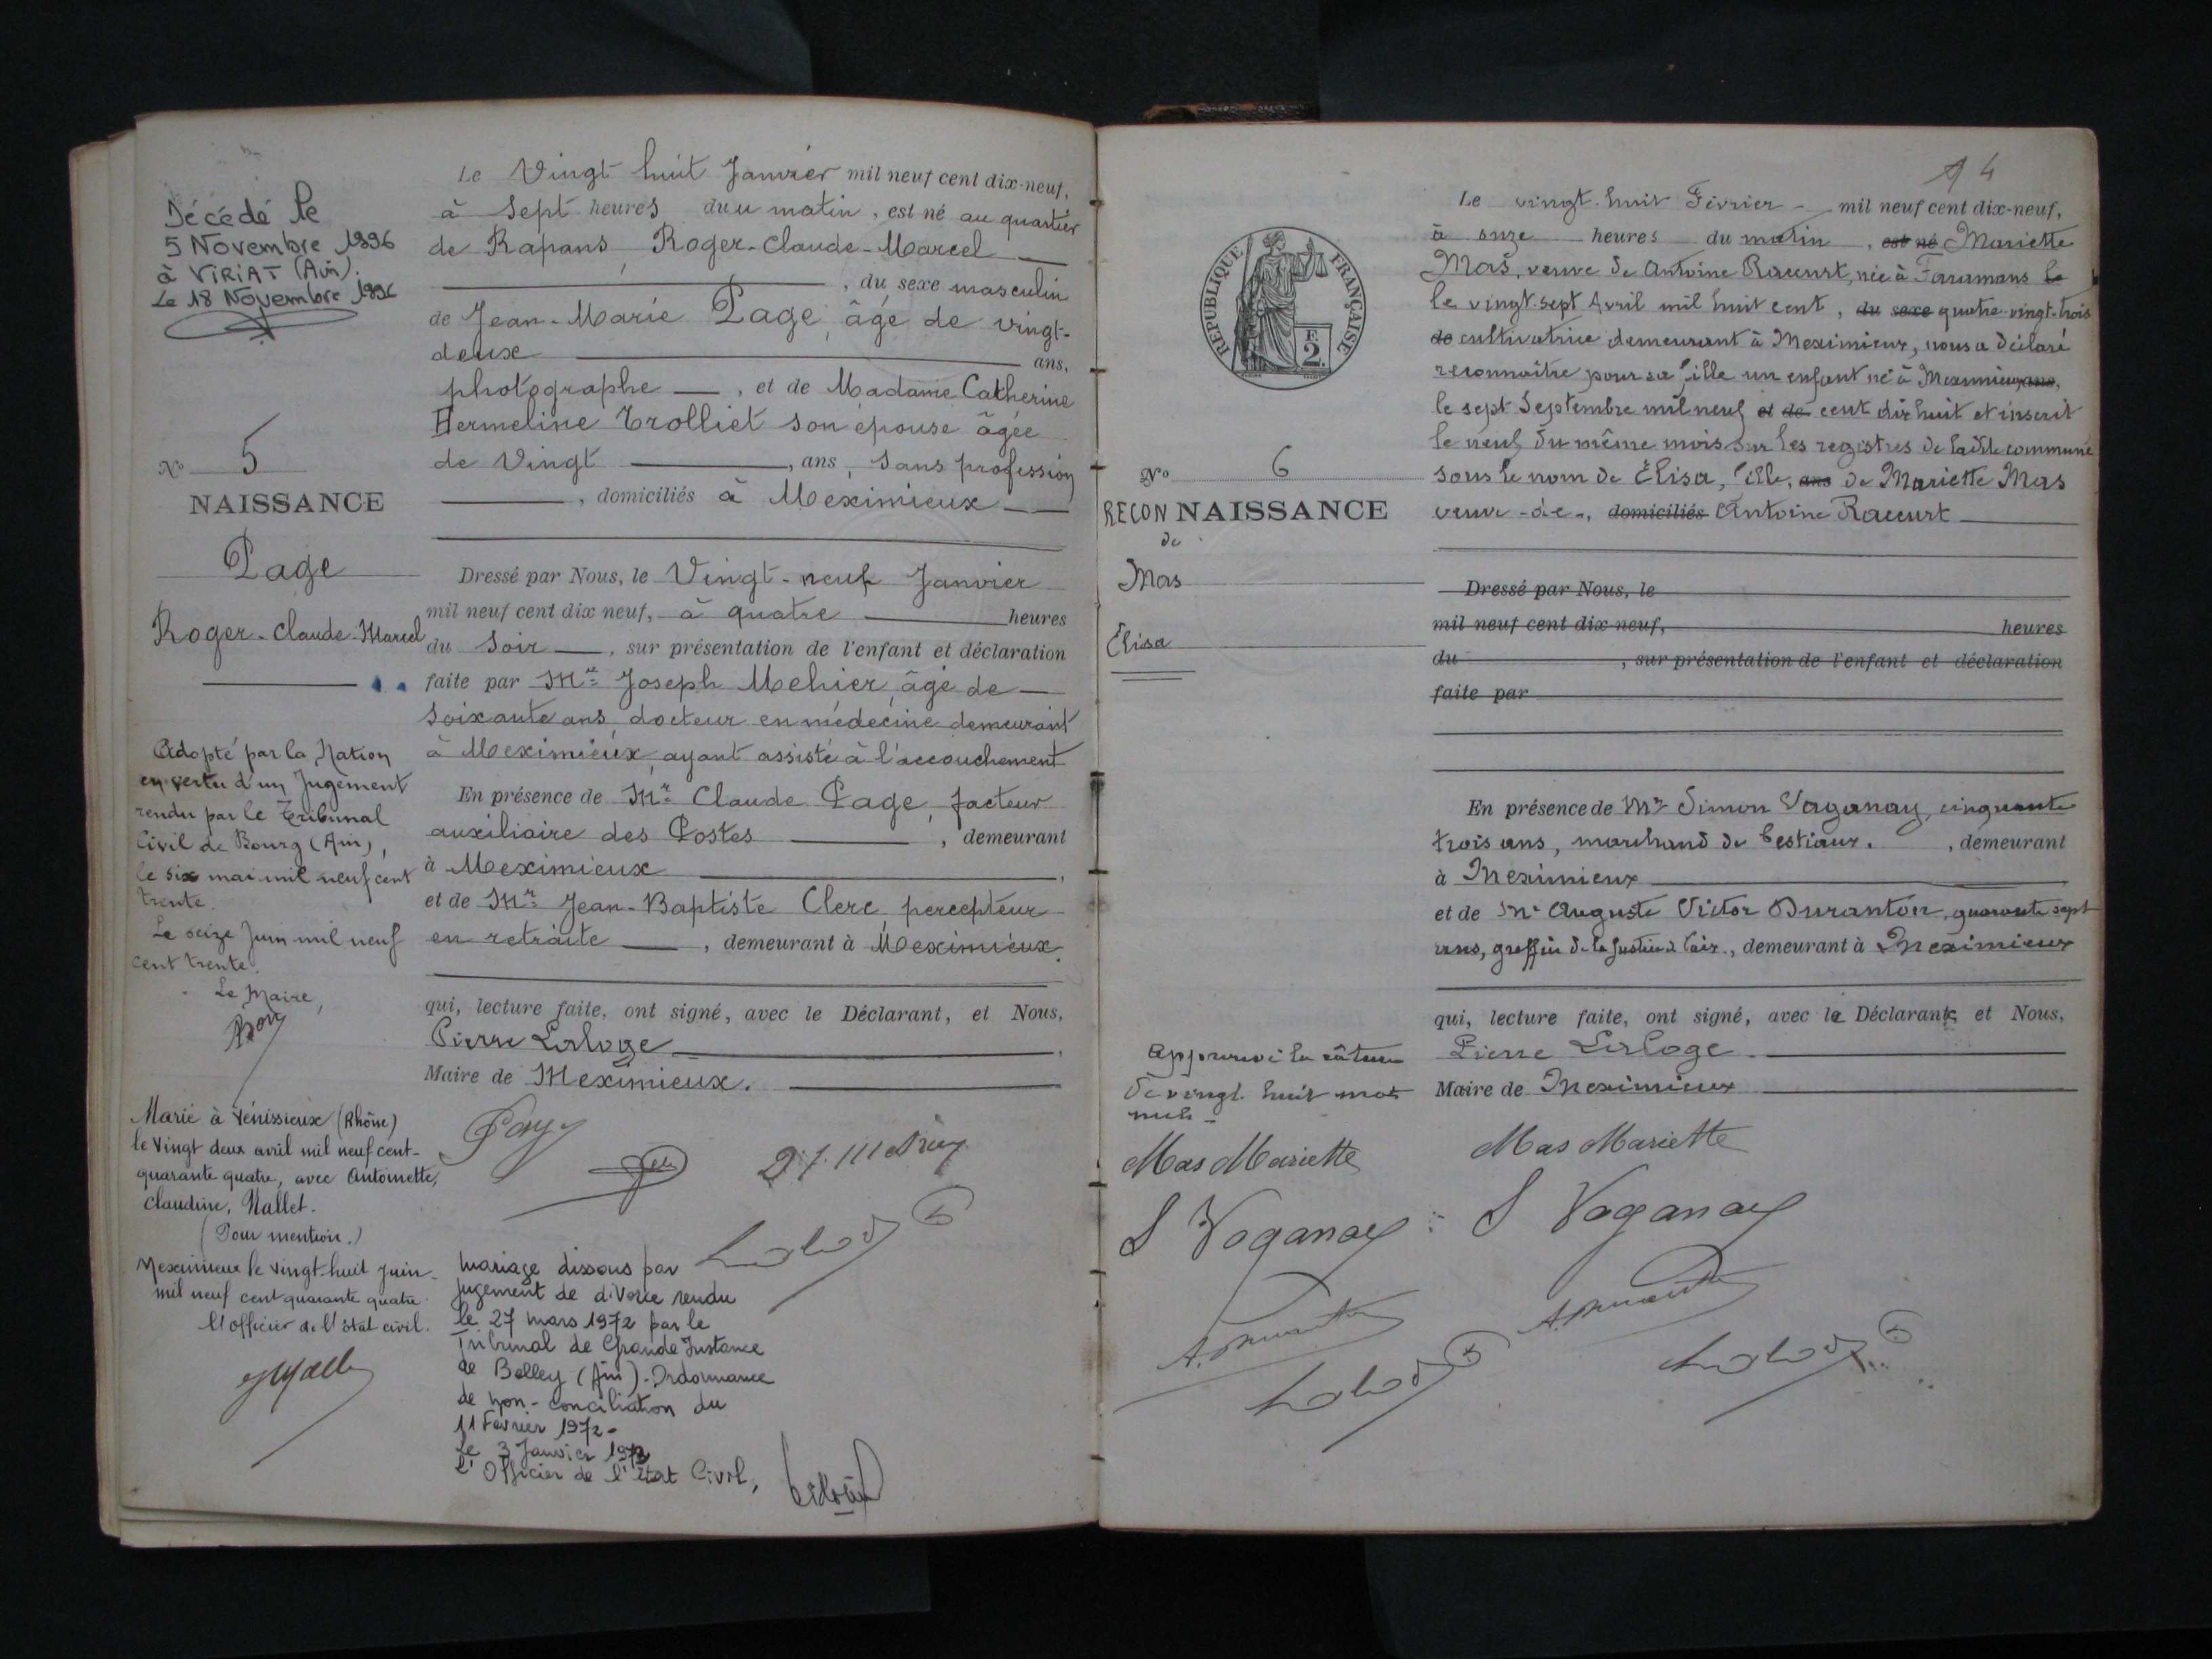 Décédé le
5 Novembre 1996
à VIRIAT (Ain).
Le 18 Novembre 1996
N° 5
NAISSANCE
Page
Roger-Claude-Marcel
Adopté par la Nation
en vertu d'un Jugement
rendu par le Tribunal
Civil de Bourg (Ain),
le six mai mil neuf cent
trente.
Le seize Juin mil neuf
cent trente.
Le Maire,
Marié à Vénissieux (Rhône)
le vingt deux avril mil neuf cent-
quarante quatre, avec Antoinette,
Claudine, Nallet.
(Pour mention.)
Meximieux le vingt-huit juin
mil neuf cent quarante quatre
l'officier de l'état civil.
Le Vingt huit Janvier mil neuf cent dix-neuf,
à Sept heures du matin, est né au quartier
de Rapans, Roger-Claude-Marcel
, du sexe masculin
de Jean-Marie Page, âgé de vingt-
deux ans,
photographe, et de Madame Catherine
Hermeline Trolliet son épouse âgée
de Vingt, ans, Sans profession
, domiciliés à Meximieux
Dressé par Nous, le Vingt-neuf Janvier
mil neuf cent dix neuf, à quatre heures
du Soir, sur présentation de l'enfant et déclaration
faite par Mr Joseph Mehier, âgé de
Soixante ans docteur en médecine demeurant
à Meximieux, ayant assisté à l'accouchement
En présence de Mr Claude Page, facteur
auxiliaire des Postes, demeurant
à Meximieux
et de Mr Jean-Baptiste Clerc, percepteur
en retraite, demeurant à Meximieux.
qui, lecture faite, ont signé, avec le Déclarant, et Nous,
Pierre Laloge
Maire de Meximieux.
Page
mariage dissous par
jugement de divorce rendu
le 27 mars 1972 par le
Tribunal de Grande Instance
de Belley (Ain)-Ordonnance
de non-conciliation du
11 Février 1972-
Le 3 Janvier 1973
L'Officier de l'Etat Civil,
4
REPUBLIQUE FRANÇAISE
E 2
N° 6
RECONNAISSANCE
de
Mas
Élisa
Le vingt-huit Février mil neuf cent dix-neuf,
à onze heures du matin, est né Mariette
Mas, veuve de Antoine Raccurt, née à Faramans le
le vingt-sept Avril mil huit cent, du sexe quatre-vingt-trois
de cultivatrice demeurant à Meximieux, nous a déclaré
reconnaître pour sa fille un enfant né à Meximieux ans,
le sept Septembre mil neuf et de cent dix huit et inscrit
le neuf du même mois sur les registres de ladite commune
sous le nom de Élisa, fille, ans de Mariette Mas
veuve-de-, domiciliés Antoine Raccurt
Dressé par Nous, le
mil neuf cent dix-neuf, heures
du , sur présentation de l'enfant et déclaration
faite par
En présence de Mr Simon Vaganay, cinquante
trois ans, marchand de bestiaux, demeurant
à Meximieux
et de Mr Auguste Victor Duranton, quarante sept
ans, greffier de la Justice de Paix, demeurant à Meximieux
qui, lecture faite, ont signé, avec la Déclarante et Nous,
Pierre Laloge
Maire de Meximieux
Approuvé la râture
de vingt-huit mots
nuls-
Mas Mariette
Mas Mariette
S Vaganay
S Vaganay